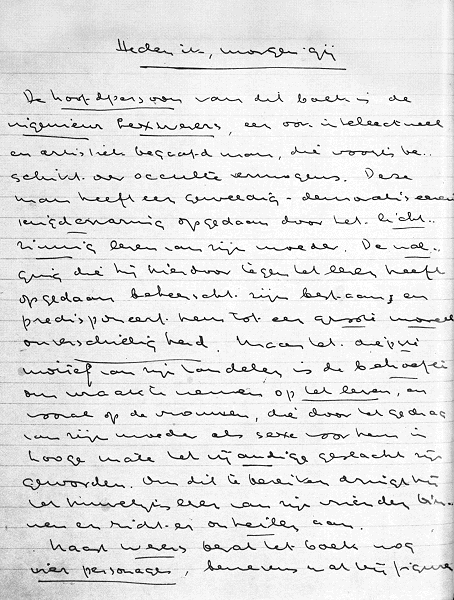 Heden ik, morgen gij
De hoofdpersoon van dit boek is de
ingenieur Lex Weers, een ook intellectueel
en artistiek begaafd man, die voorts be-
schikt over occulte vermogens. Deze
man heeft een geweldig-demoraliseerende
jeugdervaring opgedaan door het licht-
zinnig leven van zijn moeder. De wal-
ging die hij hierdoor tegen het leven heeft
opgedaan beheerscht zijn bestaan, en
predisponeert hem tot een groote moreele
onverschilligheid. Maar het diepste
motief van zijn handelen is de behoefte
om wraak te nemen op het leven, en
vooral op de vrouwen, die door het gedrag
van zijn moeder als sexe voor hem in
hooge mate het vijandige geslacht zijn
geworden. Om dit te bereiken dringt hij
het huwelijksleven van zijn vrienden bin-
nen en richt er onheilen aan.
Naast Weers bevat het boek nog
vier personages, benevens wat bijfiguren